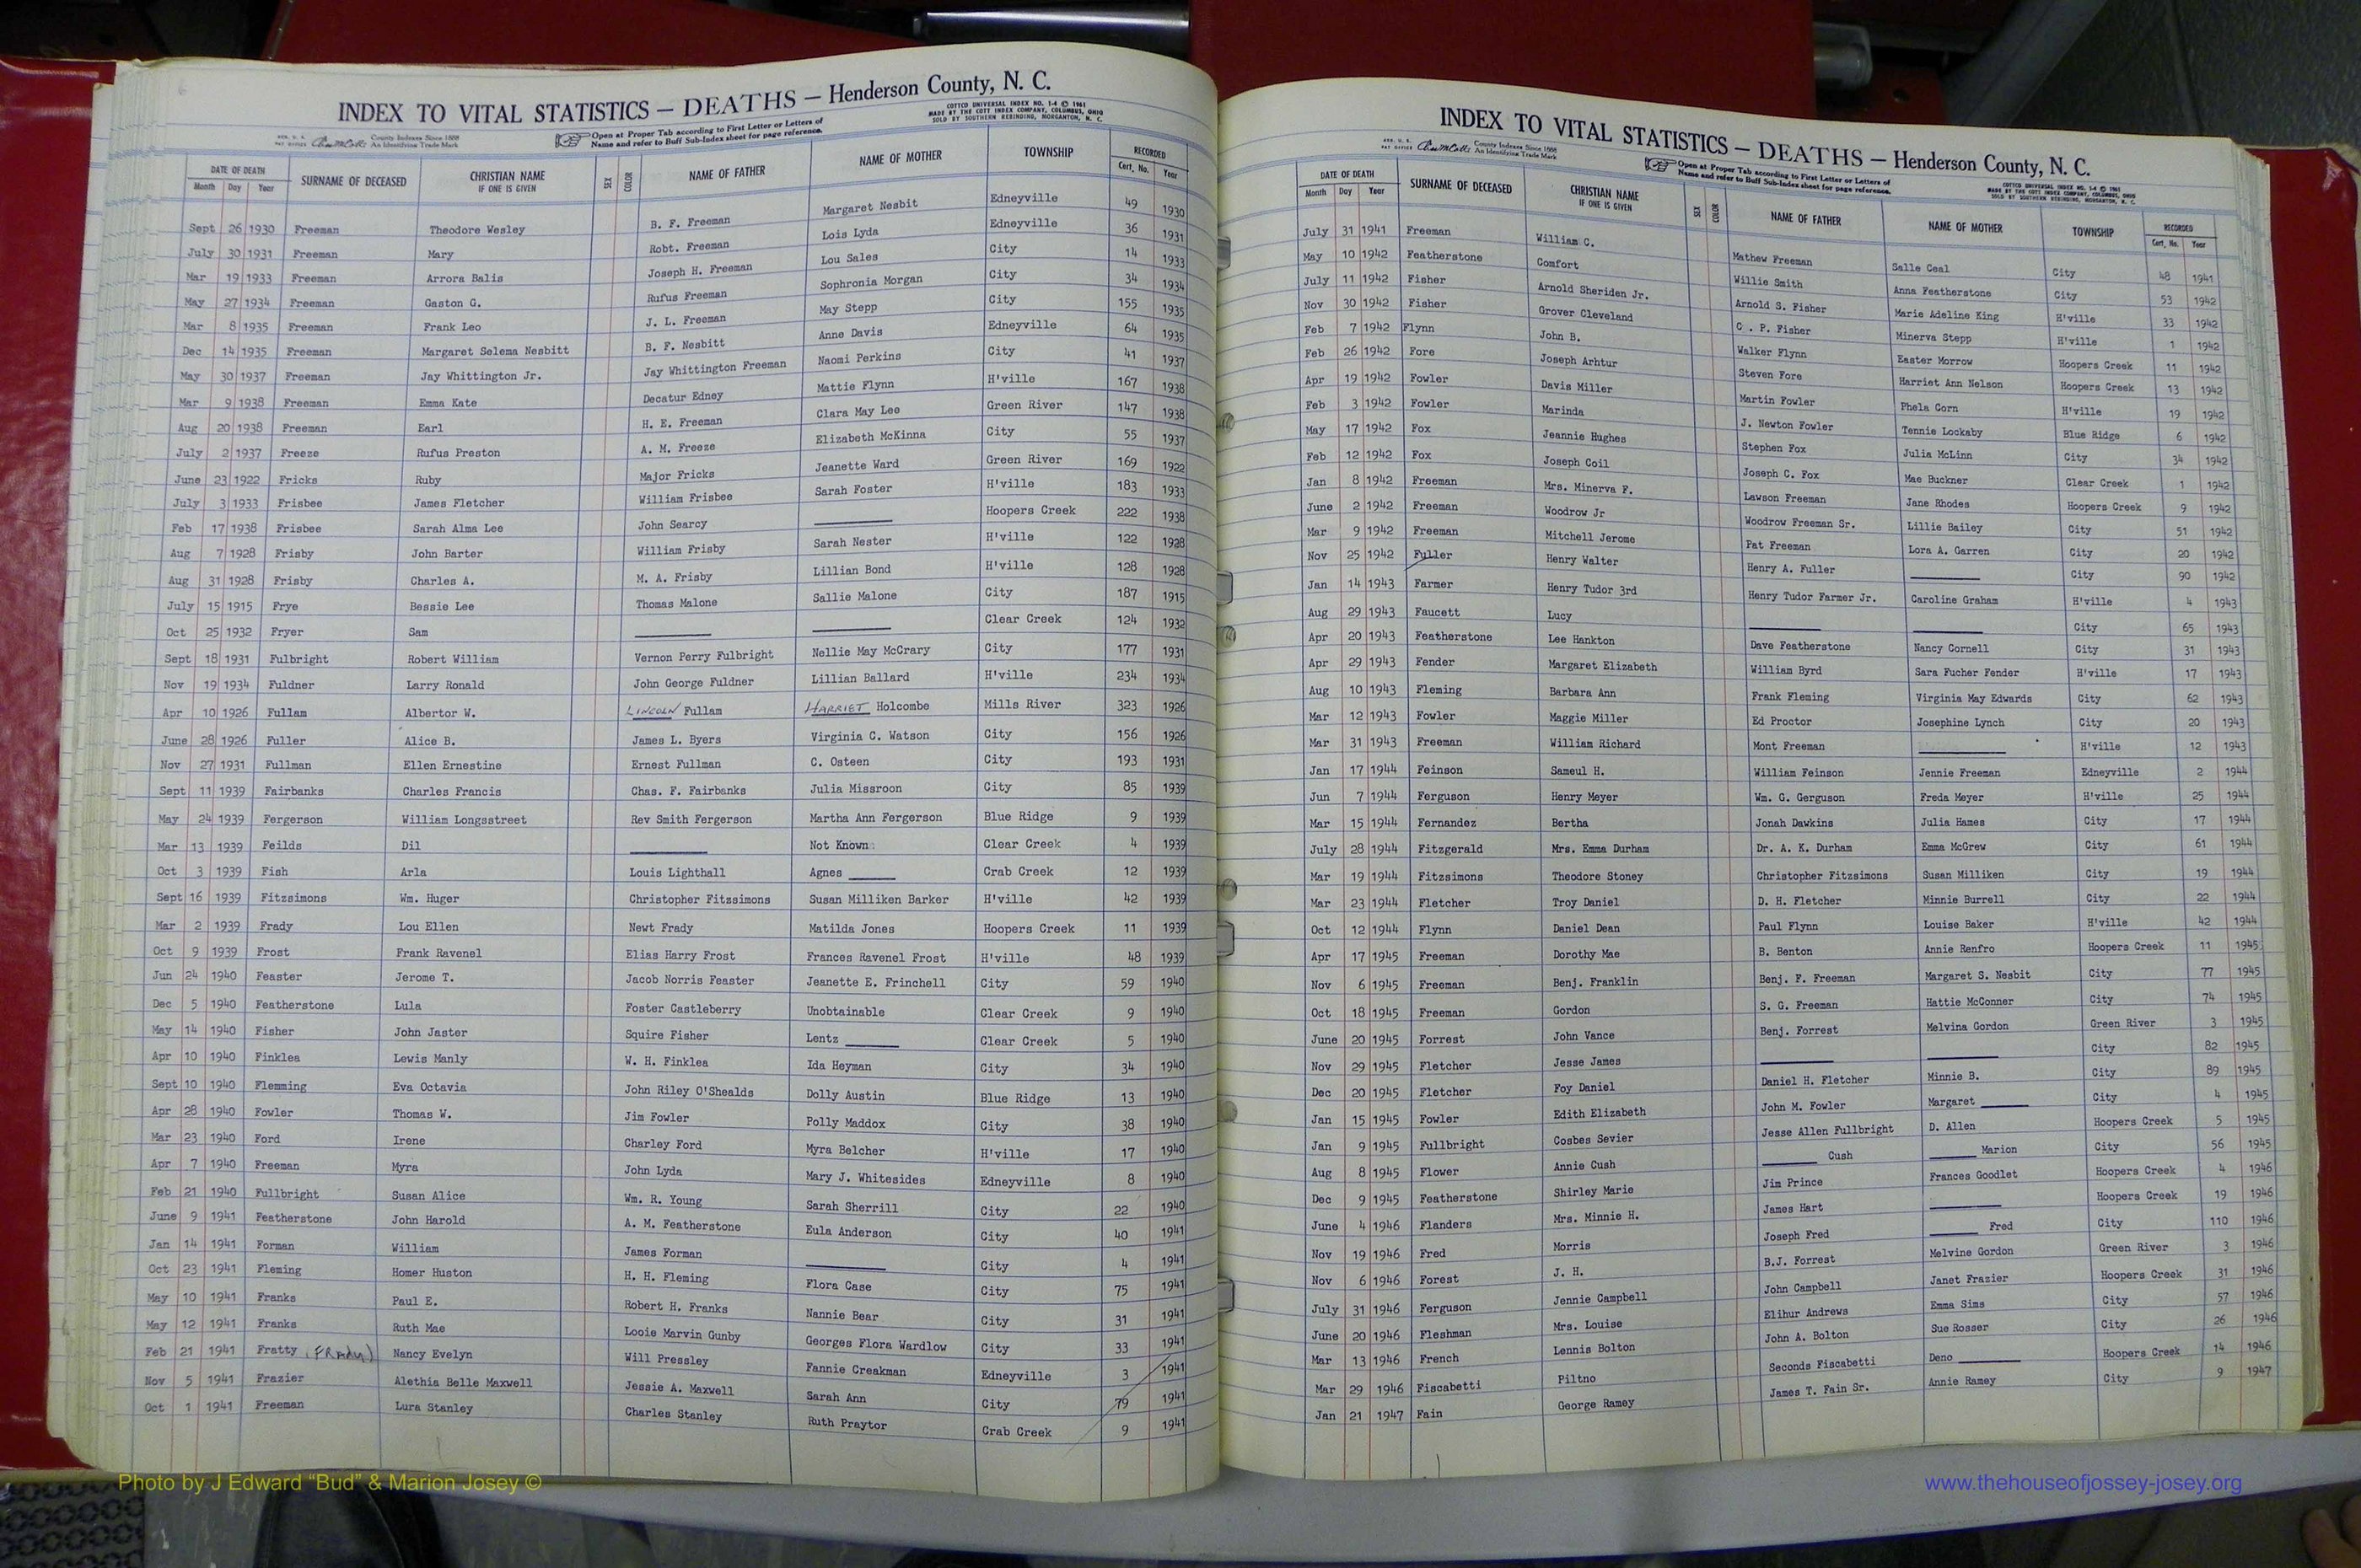 INDEX TO VITAL STATISTICS — DEATHS — Henderson County, N. C.
COTTCO UNIVERSAL INDEX NO. 1-4 © 1961
MADE BY THE COTT INDEX COMPANY, COLUMBUS, OHIO
SOLD BY SOUTHERN REBINDING, MORGANTON, N. C.
County Indexes Since 1888
An Identifying Trade Mark
Open at Proper Tab according to First Letter or Letters of
Name and refer to Buff Sub-Index sheet for page reference.
DATE OF DEATH SURNAME OF DECEASED CHRISTIAN NAME SEX COLOR NAME OF FATHER NAME OF MOTHER TOWNSHIP RECORDED
Month Day Year IF ONE IS GIVEN Cert. No. Year
Sept 26 1930 Freeman Theodore Wesley B. F. Freeman Margaret Nesbit Edneyville 49 1930
July 30 1931 Freeman Mary Robt. Freeman Lois Lyda Edneyville 36 1931
Mar 19 1933 Freeman Arrora Balis Joseph H. Freeman Lou Sales City 14 1933
May 27 1934 Freeman Gaston G. Rufus Freeman Sophronia Morgan City 34 1934
Mar 8 1935 Freeman Frank Leo J. L. Freeman May Stepp City 155 1935
Dec 14 1935 Freeman Margaret Selema Nesbitt B. F. Nesbitt Anne Davis Edneyville 64 1935
May 30 1937 Freeman Jay Whittington Jr. Jay Whittington Freeman Naomi Perkins City 41 1937
Mar 9 1938 Freeman Emma Kate Decatur Edney Mattie Flynn H'ville 167 1938
Aug 20 1938 Freeman Earl H. E. Freeman Clara May Lee Green River 147 1938
July 2 1937 Freeze Rufus Preston A. M. Freeze Elizabeth McKinna City 55 1937
June 23 1922 Fricks Ruby Major Fricks Jeanette Ward Green River 169 1922
July 3 1933 Frisbee James Fletcher William Frisbee Sarah Foster H'ville 183 1933
Feb 17 1938 Frisbee Sarah Alma Lee John Searcy Hoopers Creek 222 1938
Aug 7 1928 Frisby John Barter William Frisby Sarah Nester H'ville 122 1928
Aug 31 1928 Frisby Charles A. M. A. Frisby Lillian Bond H'ville 128 1928
July 15 1915 Frye Bessie Lee Thomas Malone Sallie Malone City 187 1915
Oct 25 1932 Fryer Sam Clear Creek 124 1932
Sept 18 1931 Fulbright Robert William Vernon Perry Fulbright Nellie May McCrary City 177 1931
Nov 19 1934 Fuldner Larry Ronald John George Fuldner Lillian Ballard H'ville 234 1934
Apr 10 1926 Fullam Albertor W. LINCOLN Fullam HARRIET Holcombe Mills River 323 1926
June 28 1926 Fuller Alice B. James L. Byers Virginia C. Watson City 156 1926
Nov 27 1931 Fullman Ellen Ernestine Ernest Fullman C. Osteen City 193 1931
Sept 11 1939 Fairbanks Charles Francis Chas. F. Fairbanks Julia Missroon City 85 1939
May 24 1939 Fergerson William Longsstreet Rev Smith Fergerson Martha Ann Fergerson Blue Ridge 9 1939
Mar 13 1939 Feilds Dil Not Known Clear Creek 4 1939
Oct 3 1939 Fish Arla Louis Lighthall Agnes Crab Creek 12 1939
Sept 16 1939 Fitzsimons Wm. Huger Christopher Fitzsimons Susan Milliken Barker H'ville 42 1939
Mar 2 1939 Frady Lou Ellen Newt Frady Matilda Jones Hoopers Creek 11 1939
Oct 9 1939 Frost Frank Ravenel Elias Harry Frost Frances Ravenel Frost H'ville 48 1939
Jun 24 1940 Feaster Jerome T. Jacob Norris Feaster Jeanette E. Frinchell City 59 1940
Dec 5 1940 Featherstone Lula Foster Castleberry Unobtainable Clear Creek 9 1940
May 14 1940 Fisher John Jaster Squire Fisher Lentz Clear Creek 5 1940
Apr 10 1940 Finklea Lewis Manly W. H. Finklea Ida Heyman City 34 1940
Sept 10 1940 Flemming Eva Octavia John Riley O'Shealds Dolly Austin Blue Ridge 13 1940
Apr 28 1940 Fowler Thomas W. Jim Fowler Polly Maddox City 38 1940
Mar 23 1940 Ford Irene Charley Ford Myra Belcher H'ville 17 1940
Apr 7 1940 Freeman Myra John Lyda Mary J. Whitesides Edneyville 8 1940
Feb 21 1940 Fullbright Susan Alice Wm. R. Young Sarah Sherrill City 22 1940
June 9 1941 Featherstone John Harold A. M. Featherstone Eula Anderson City 40 1941
Jan 14 1941 Forman William James Forman City 4 1941
Oct 23 1941 Fleming Homer Huston H. H. Fleming Flora Case City 75 1941
May 10 1941 Franks Paul E. Robert H. Franks Nannie Bear City 31 1941
May 12 1941 Franks Ruth Mae Looie Marvin Gunby Georges Flora Wardlow City 33 1941
Feb 21 1941 Fratty (FRADY) Nancy Evelyn Will Pressley Fannie Creakman Edneyville 3 1941
Nov 5 1941 Frazier Alethia Belle Maxwell Jessie A. Maxwell Sarah Ann City 79 1941
Oct 1 1941 Freeman Lura Stanley Charles Stanley Ruth Praytor Crab Creek 9 1941
INDEX TO VITAL STATISTICS — DEATHS — Henderson County, N. C.
County Indexes Since 1888
An Identifying Trade Mark
Open at Proper Tab according to First Letter or Letters of
Name and refer to Buff Sub-Index sheet for page reference.
COTTCO UNIVERSAL INDEX NO. 1-4 © 1961
MADE BY THE COTT INDEX COMPANY, COLUMBUS, OHIO
SOLD BY SOUTHERN REBINDING, MORGANTON, N. C.
DATE OF DEATH SURNAME OF DECEASED CHRISTIAN NAME SEX COLOR NAME OF FATHER NAME OF MOTHER TOWNSHIP RECORDED
Month Day Year IF ONE IS GIVEN Cert. No. Year
July 31 1941 Freeman William C. Mathew Freeman Salle Ceal City 48 1941
May 10 1942 Featherstone Comfort Willie Smith Anna Featherstone City 53 1942
July 11 1942 Fisher Arnold Sheriden Jr. Arnold S. Fisher Marie Adeline King H'ville 33 1942
Nov 30 1942 Fisher Grover Cleveland C . P. Fisher Minerva Stepp H'ville 1 1942
Feb 7 1942 Flynn John B. Walker Flynn Easter Morrow Hoopers Creek 11 1942
Feb 26 1942 Fore Joseph Arhtur Steven Fore Harriet Ann Nelson Hoopers Creek 13 1942
Apr 19 1942 Fowler Davis Miller Martin Fowler Phela Corn H'ville 19 1942
Feb 3 1942 Fowler Marinda J. Newton Fowler Tennie Lockaby Blue Ridge 6 1942
May 17 1942 Fox Jeannie Hughes Stephen Fox Julia McLinn City 34 1942
Feb 12 1942 Fox Joseph Coil Joseph C. Fox Mae Buckner Clear Creek 1 1942
Jan 8 1942 Freeman Mrs. Minerva F. Lawson Freeman Jane Rhodes Hoopers Creek 9 1942
June 2 1942 Freeman Woodrow Jr Woodrow Freeman Sr. Lillie Bailey City 51 1942
Mar 9 1942 Freeman Mitchell Jerome Pat Freeman Lora A. Garren City 20 1942
Nov 25 1942 Fuller Henry Walter Henry A. Fuller City 90 1942
Jan 14 1943 Farmer Henry Tudor 3rd Henry Tudor Farmer Jr. Caroline Graham H'ville 4 1943
Aug 29 1943 Faucett Lucy City 65 1943
Apr 20 1943 Featherstone Lee Hankton Dave Featherstone Nancy Cornell City 31 1943
Apr 29 1943 Fender Margaret Elizabeth William Byrd Sara Fucher Fender H'ville 17 1943
Aug 10 1943 Fleming Barbara Ann Frank Fleming Virginia May Edwards City 62 1943
Mar 12 1943 Fowler Maggie Miller Ed Proctor Josephine Lynch City 20 1943
Mar 31 1943 Freeman William Richard Mont Freeman H'ville 12 1943
Jan 17 1944 Feinson Sameul H. William Feinson Jennie Freeman Edneyville 2 1944
Jun 7 1944 Ferguson Henry Meyer Wm. G. Gerguson Freda Meyer H'ville 25 1944
Mar 15 1944 Fernandez Bertha Jonah Dawkins Julia Hames City 17 1944
July 28 1944 Fitzgerald Mrs. Emma Durham Dr. A. K. Durham Emma McGrew City 61 1944
Mar 19 1944 Fitzsimons Theodore Stoney Christopher Fitzsimons Susan Milliken City 19 1944
Mar 23 1944 Fletcher Troy Daniel D. H. Fletcher Minnie Burrell City 22 1944
Oct 12 1944 Flynn Daniel Dean Paul Flynn Louise Baker H'ville 42 1944
Apr 17 1945 Freeman Dorothy Mae B. Benton Annie Renfro Hoopers Creek 11 1945
Nov 6 1945 Freeman Benj. Franklin Benj. F. Freeman Margaret S. Nesbit City 77 1945
Oct 18 1945 Freeman Gordon S. G. Freeman Hattie McConner City 74 1945
June 20 1945 Forrest John Vance Benj. Forrest Melvina Gordon Green River 3 1945
Nov 29 1945 Fletcher Jesse James City 82 1945
Dec 20 1945 Fletcher Foy Daniel Daniel H. Fletcher Minnie B. City 89 1945
Jan 15 1945 Fowler Edith Elizabeth John M. Fowler Margaret City 4 1945
Jan 9 1945 Fullbright Cosbes Sevier Jesse Allen Fullbright D. Allen Hoopers Creek 5 1945
Aug 8 1945 Flower Annie Cush Cush Marion City 56 1945
Dec 9 1945 Featherstone Shirley Marie Jim Prince Frances Goodlet Hoopers Creek 4 1946
June 4 1946 Flanders Mrs. Minnie H. James Hart Hoopers Creek 19 1946
Nov 19 1946 Fred Morris Joseph Fred Fred City 110 1946
Nov 6 1946 Forest J. H. B.J. Forrest Melvine Gordon Green River 3 1946
July 31 1946 Ferguson Jennie Campbell John Campbell Janet Frazier Hoopers Creek 31 1946
June 20 1946 Fleshman Mrs. Louise Elihur Andrews Emma Sims City 57 1946
Mar 13 1946 French Lennis Bolton John A. Bolton Sue Rosser City 26 1946
Mar 29 1946 Fiscabetti Piltno Seconds Fiscabetti Deno Hoopers Creek 14 1946
Jan 21 1947 Fain George Ramey James T. Fain Sr. Annie Ramey City 9 1947
Photo by J Edward “Bud” & Marion Josey ©
www.thehouseofjossey-josey.org